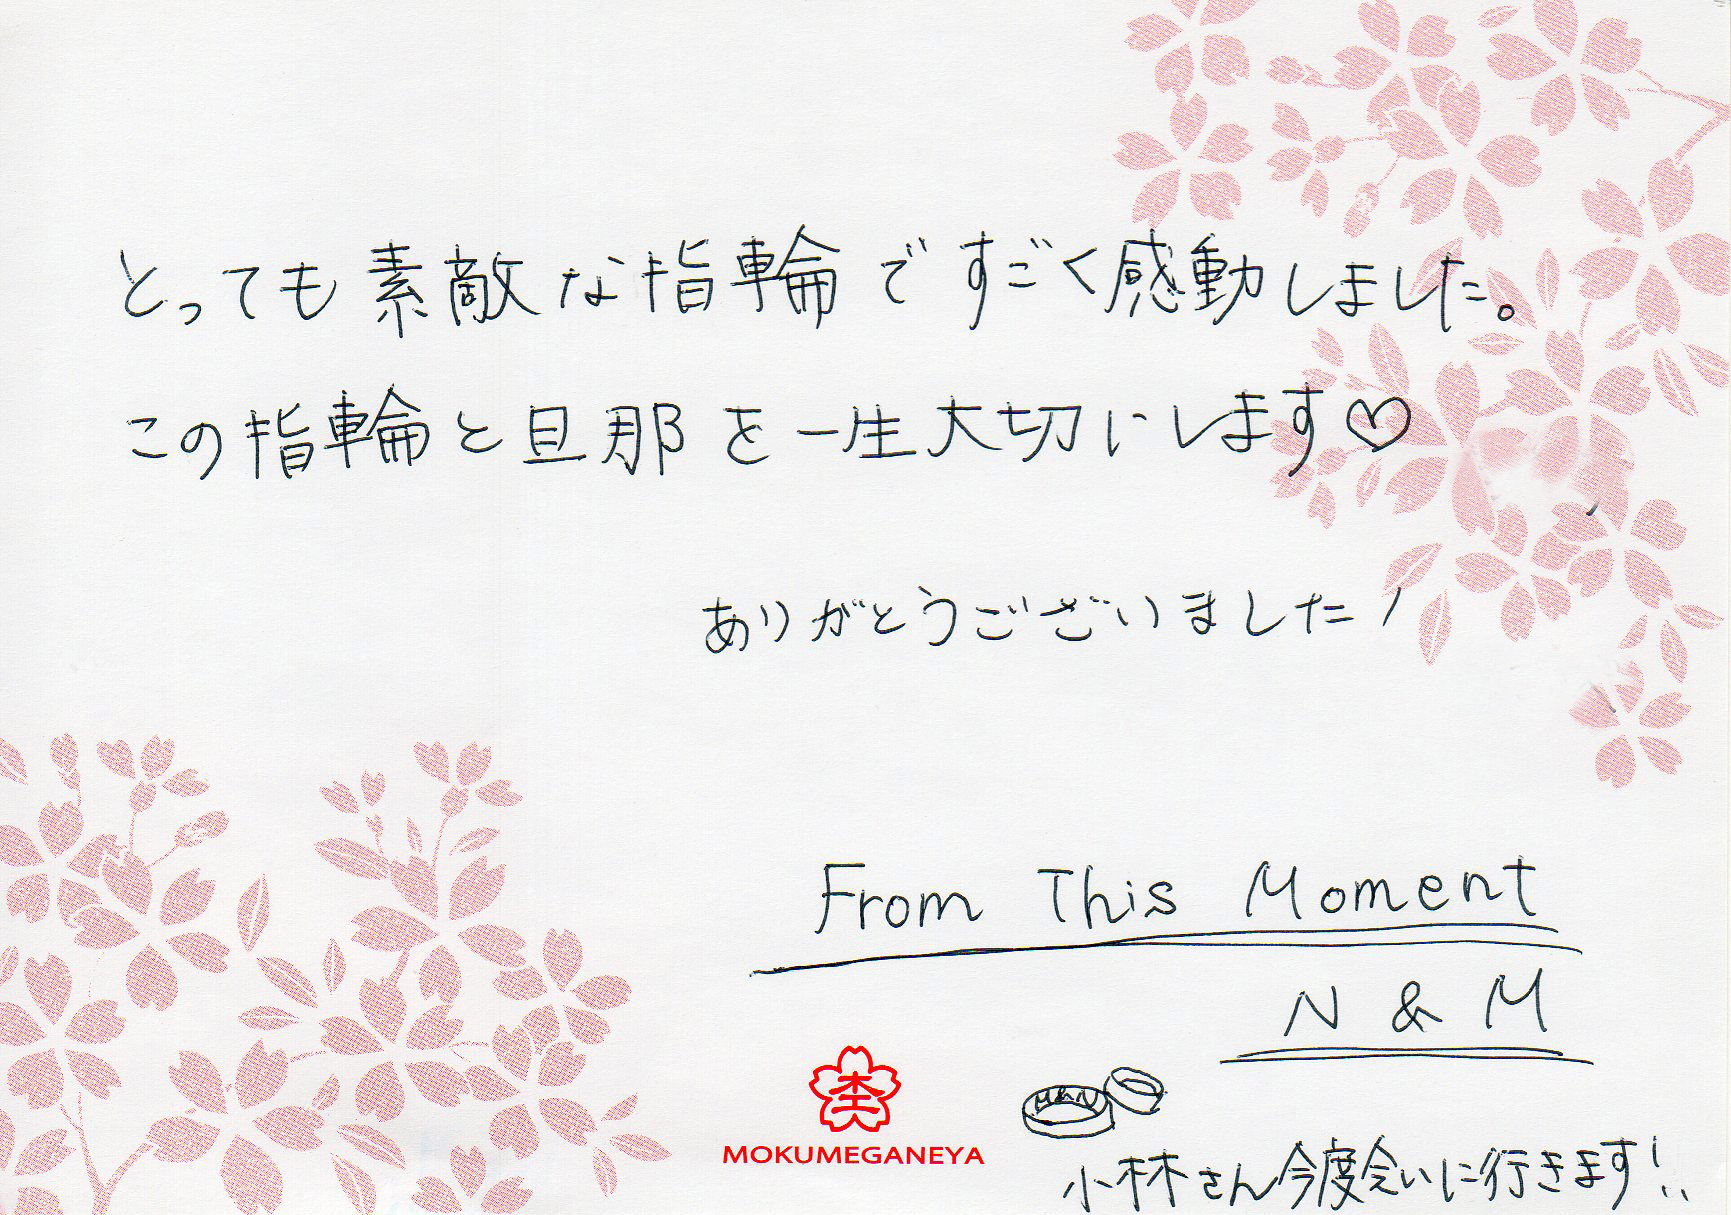 とっても素敵な指輪ですごく感動しました。
この指輪と旦那を一生大切にします♡
ありがとうございました!
From This Moment
N & M
M&N
MOKUMEGANEYA
小林さん今度会いに行きます!!